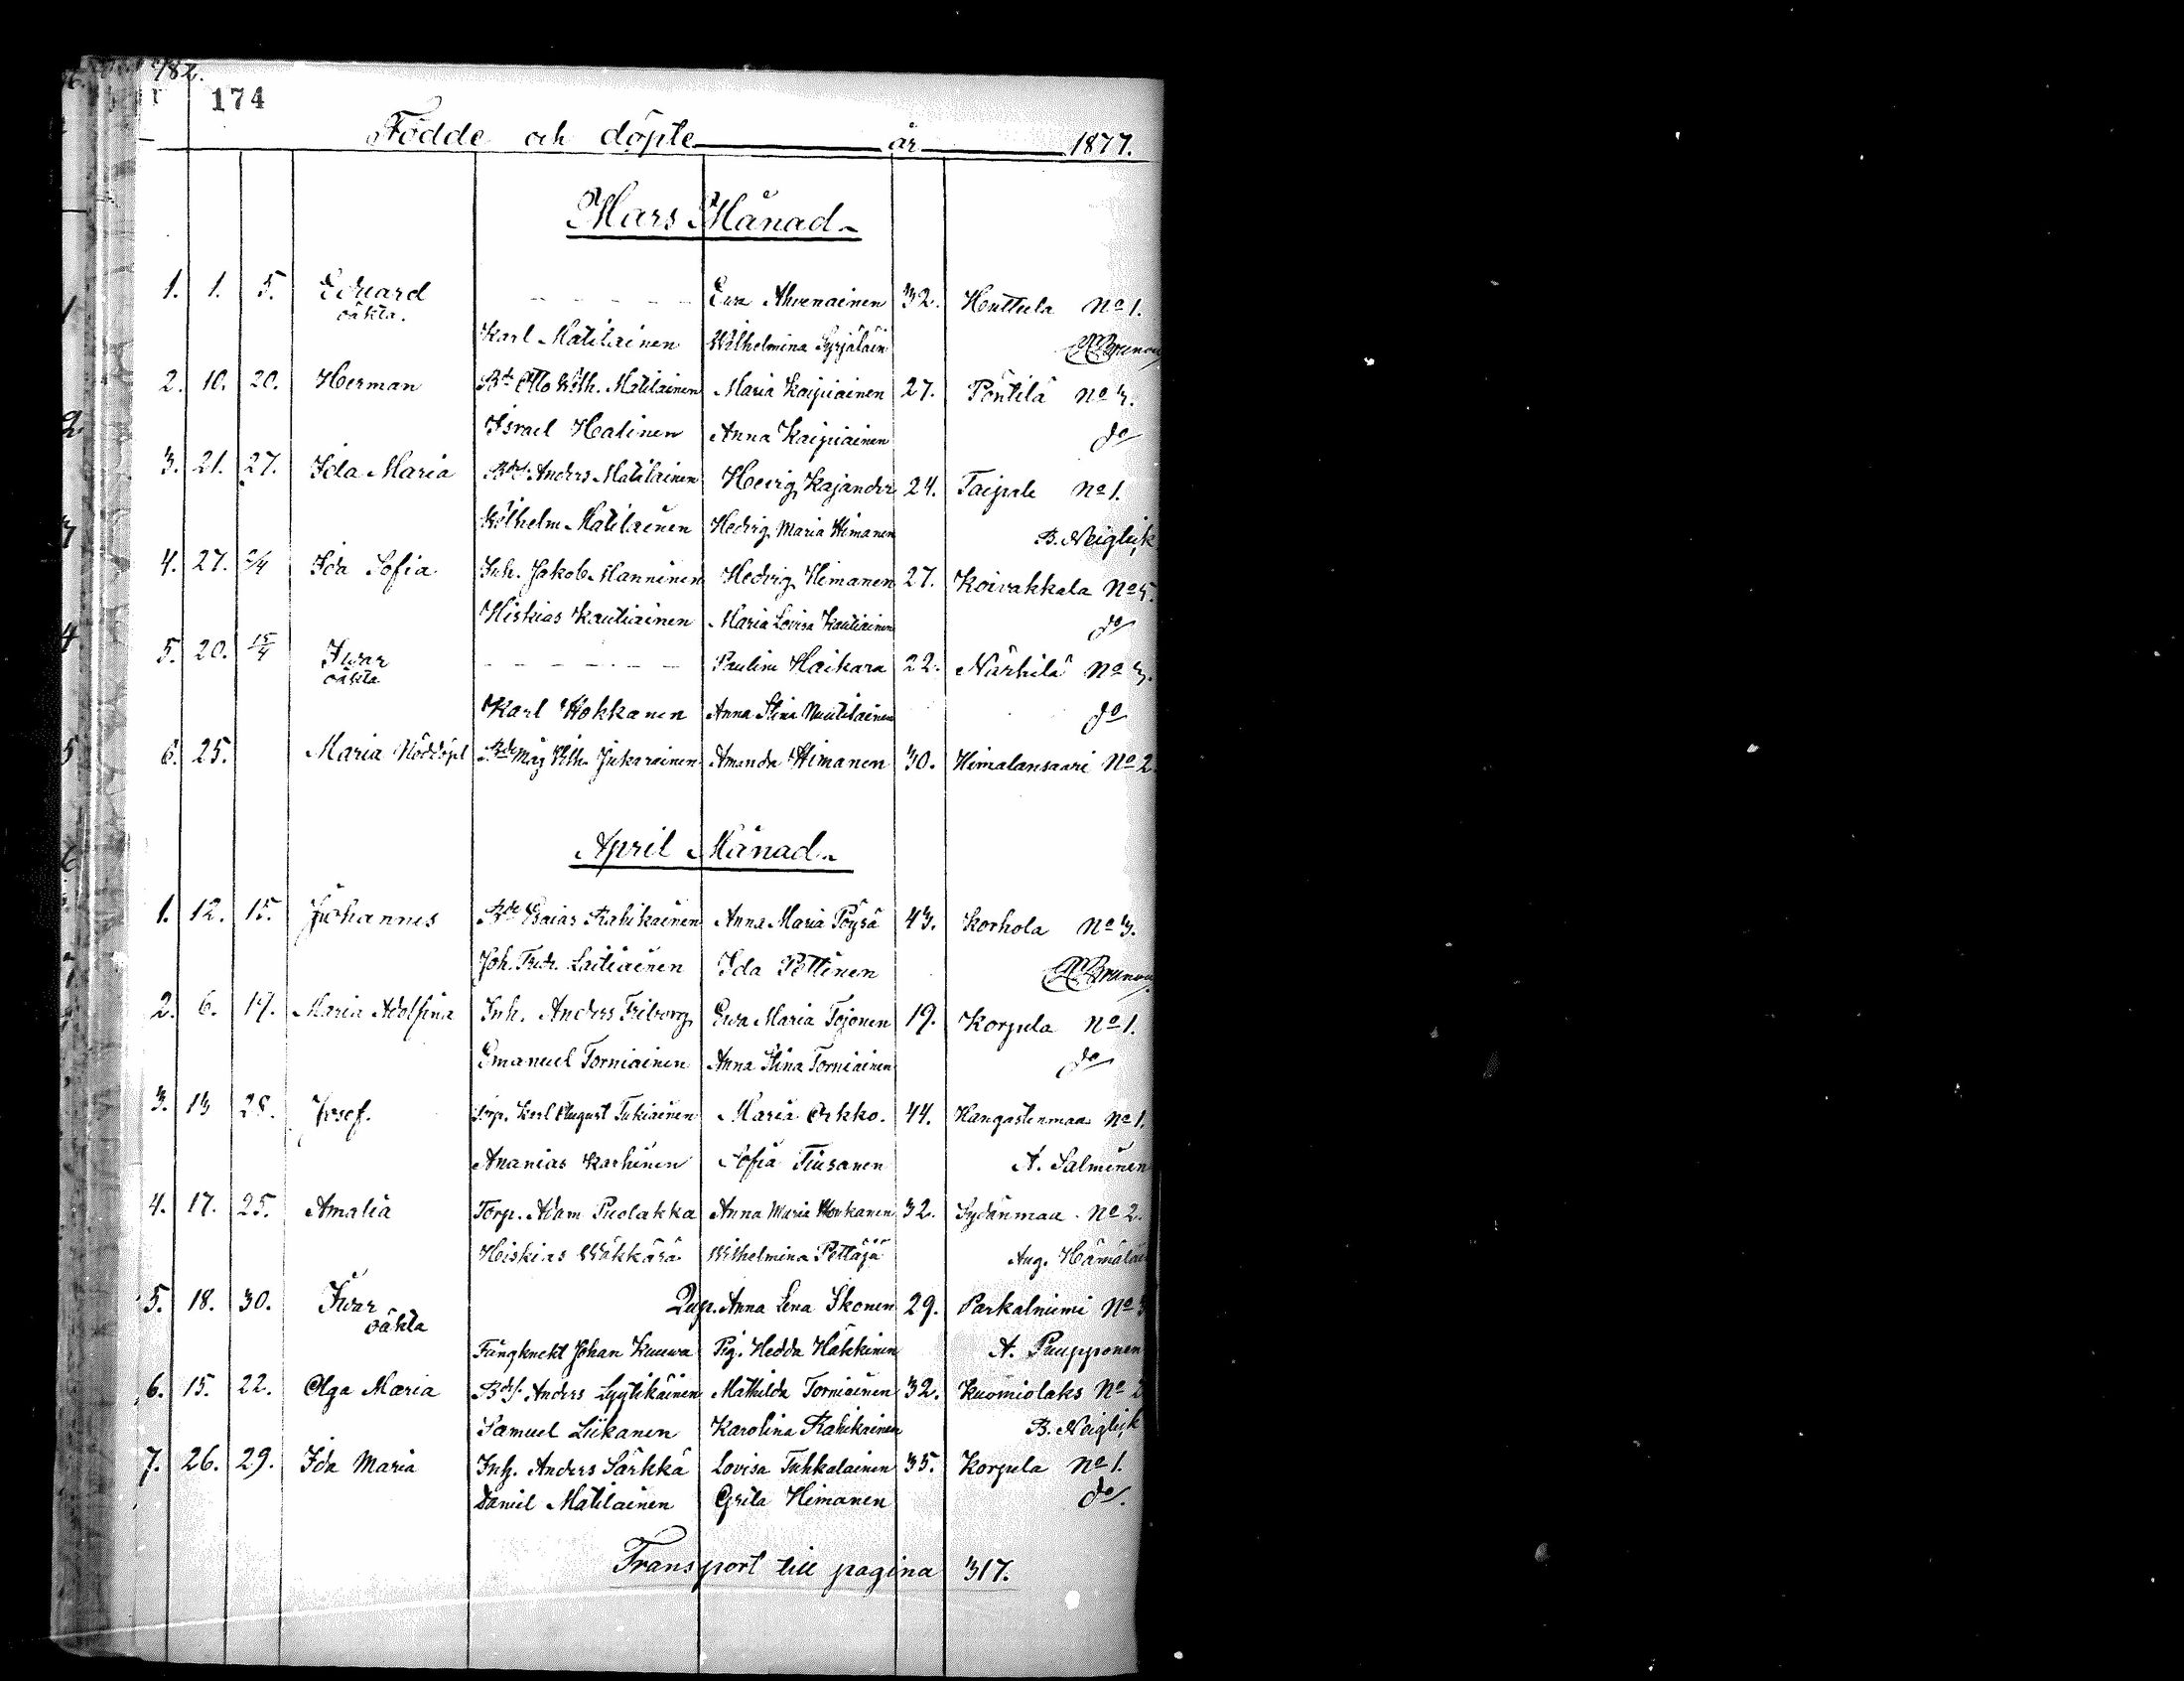 174
Födde och döpte år 1877.
Mars Månad.
1. 1. 5. Eduard Ewa Ahvenainen 32. Henttula No 1.
oäkta.
Karl Matilainen Wilhelmina Syrjäläin
2. 10. 20. Herman Bd Otto Wilh. Matilainen Maria Kaipiainen 27. Pöntilä No 3.
Israel Halinen Anna Kaipiainen do
3. 21. 27. Ida Maria Bds. Anders Matilainen Hedvig Kajander 24. Taipale No 1.
Wilhelm Matilainen Hedvig Maria Himanen B. Neiglick
4. 27. 2/4 Ida Sofia Inh. Jakob Manninen Hedvig Himanen 27. Koivakkala No 5.
Hiskias Kautiainen Maria Lovisa Kautiainen do
5. 20. 15/4 Iwar Paulina Haikara 22. Närhilä No 3.
oäkta
Karl Hokkanen Anna Stina Nuutilainen do
6. 25. Maria Nöddöpt Bde Måg Wilh. Jukarainen Amanda Himanen 30. Himalansaari No 2.
April Månad.
1. 12. 15. Johannes Bde Esaias Rahikainen Anna Maria Pöyrä 43. Korhola No 3.
Joh. Fredr. Laitiainen Ida Pettinen
2. 6. 17. Maria Adolfina Inh. Anders Friborg Ewa Maria Tojonen 19. Korpela No 1.
Emanuel Torniainen Anna Stina Torniainen do
3. 13 28. Josef. Torp. Karl August Tukiainen Maria Orkko. 44. Hangastenmaa No 1.
Ananias Karhinen Sofia Tiusanen A. Salminen
4. 17. 25. Amalia Torp. Adam Puolakka Anna Maria 32. Sydänmaa No 2.
Heiskias Wäkkärä Wilhelmina Pettäjä Aug. Hämäläi
5. 18. 30. Iwar Anna Lena Ikonen 29. Parkalniemi No 3
oäkta
Fångknekt Johan Kuuwa Pig. Hedda Häkkinen A. Puupponen
6. 15. 22. Olga Maria Bds. Anders Lyytikäinen Mathilda Torniainen 32. Kuomiolaks No 2
Samuel Liikanen Karolina Rahikainen B. Neiglick
7. 26. 29. Ida Maria Inh. Anders Särkkä Lovisa Tuhkalainen 35. Korpela No 1.
Daniel Matilainen Greta Himanen do.
Transport till pagina 317.